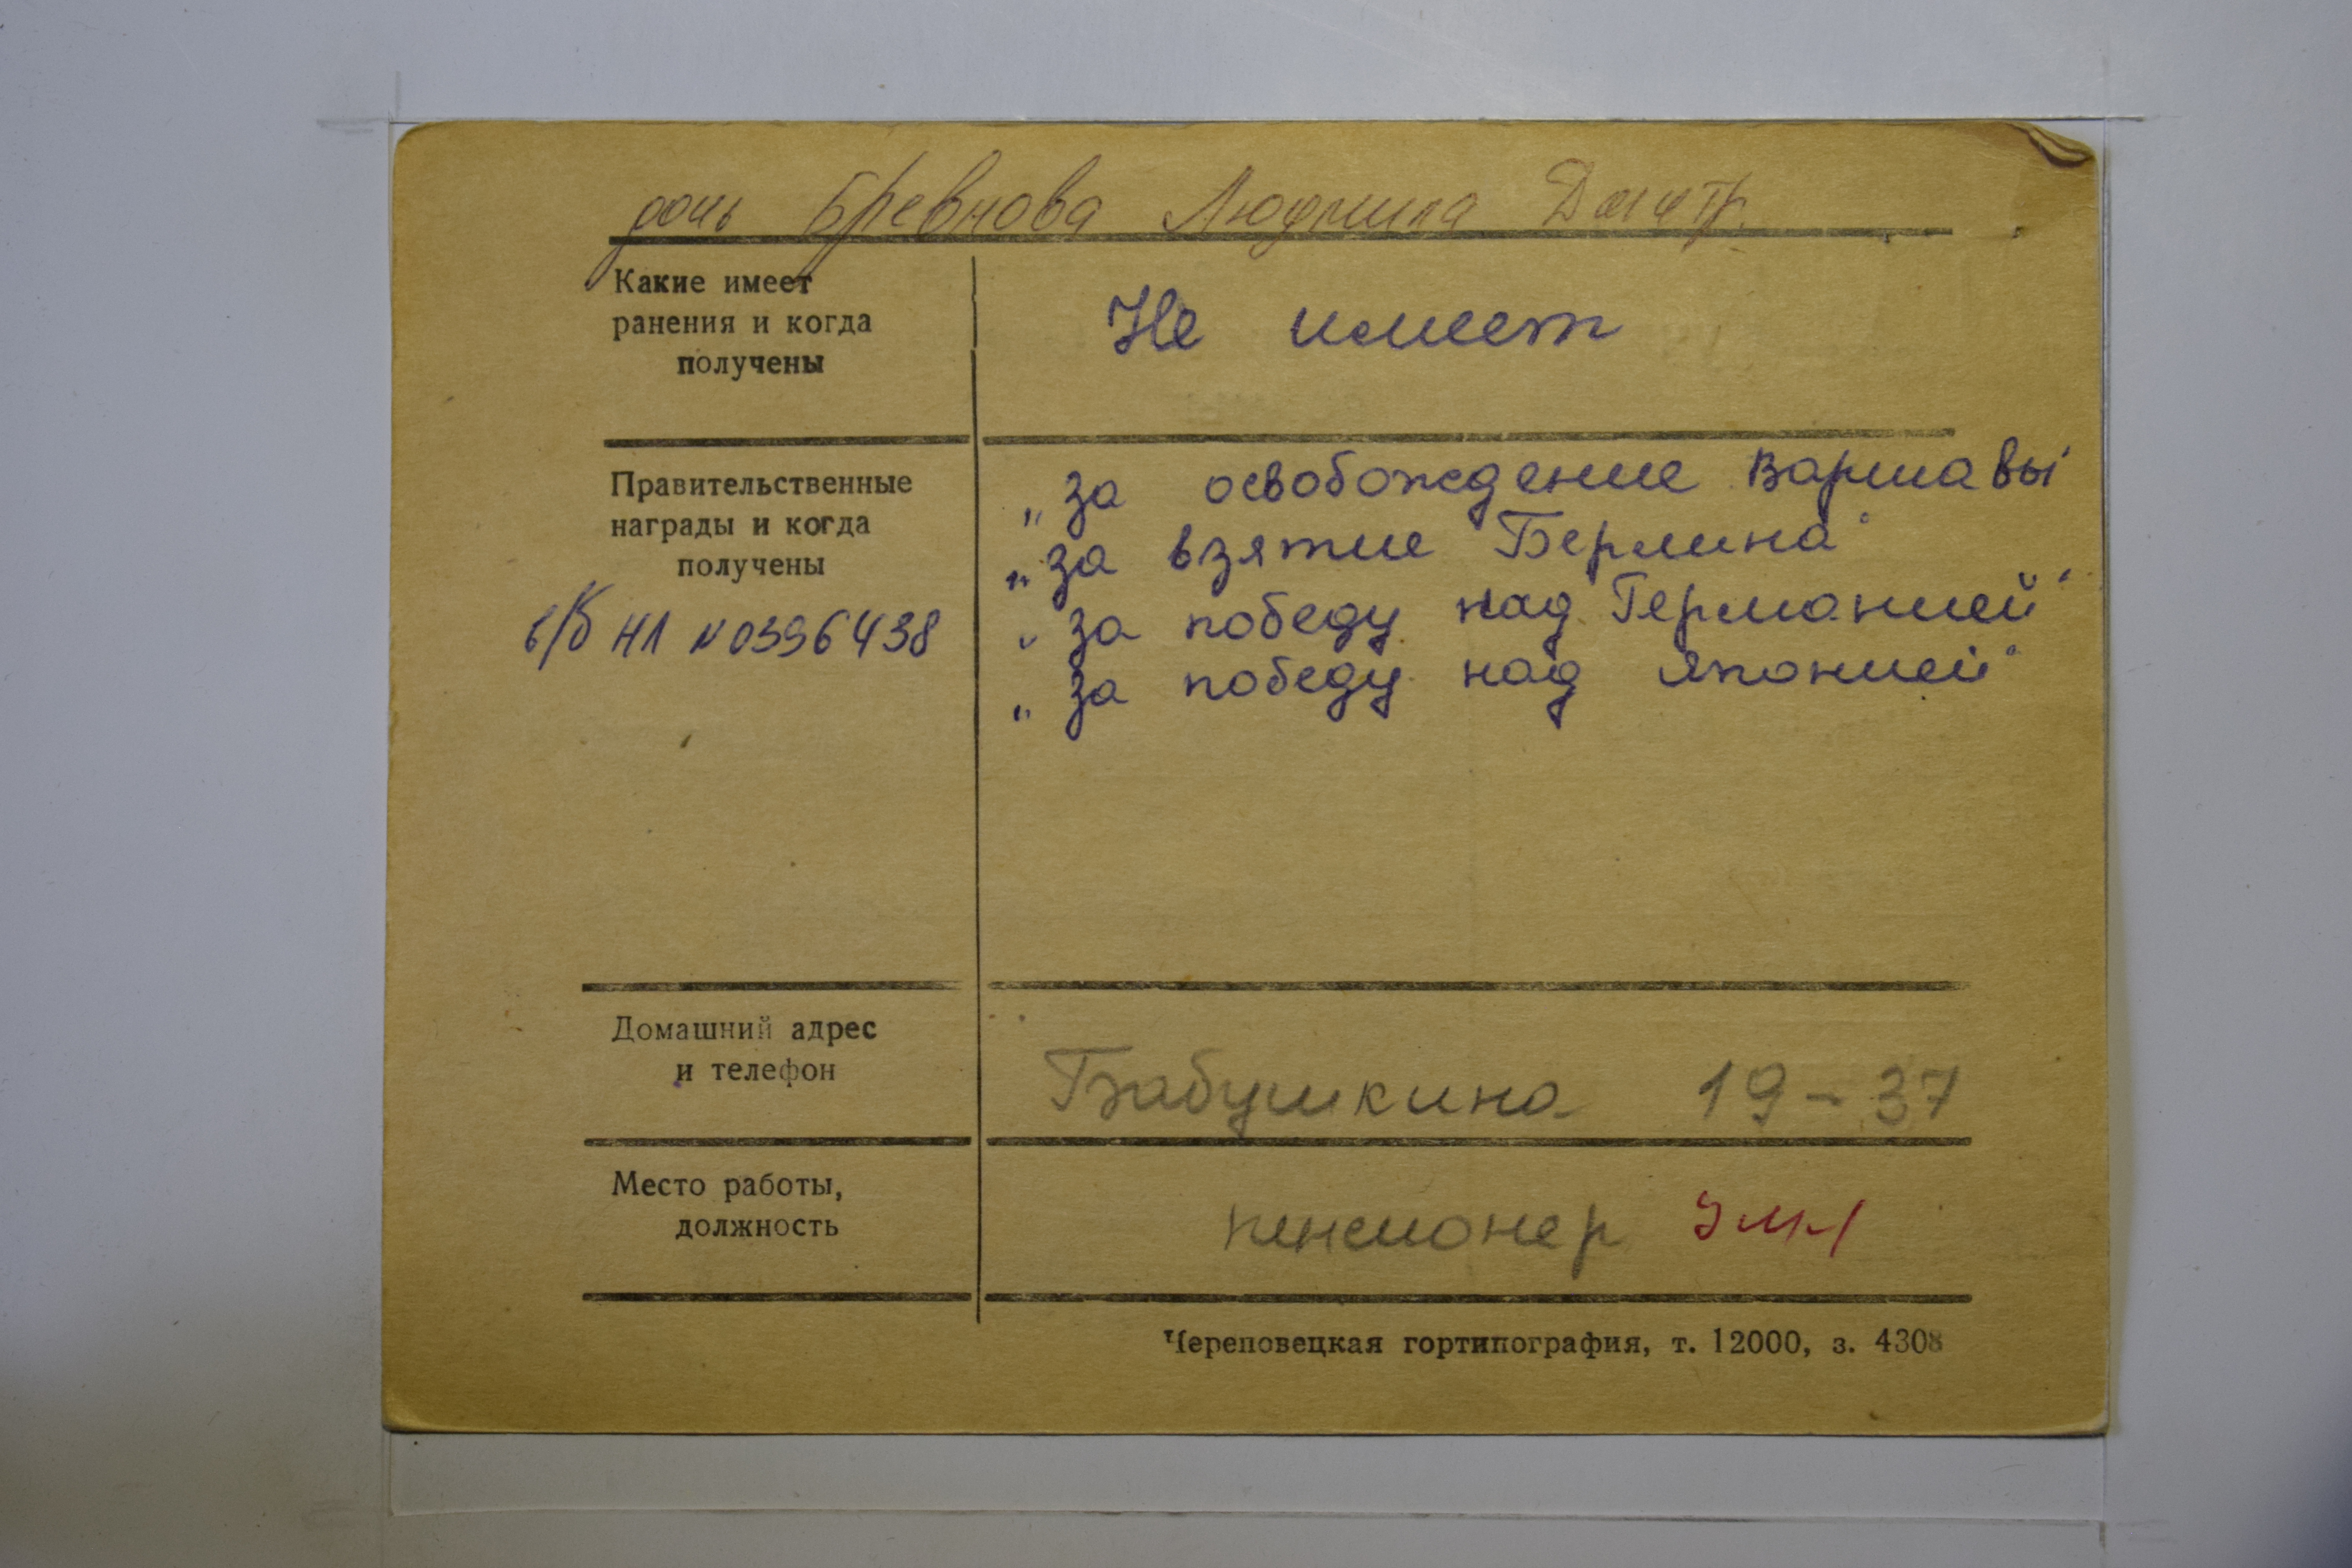 дочь Бревнова Людмила Дмитр.
Какие имеет
ранения и когда
получены
Не имеет
Правительственные
награды и когда
получены
в/б НЛ №0396438
„за освобождение Варшавы"
„за взятие Берлина"
„за победу над Германией"
„за победу над Японией"
Домашний адрес
и телефон
Бабушкина 19-37
Место работы,
должность
пенсионер
Череповецкая гортипография, т. 12000, з. 4308